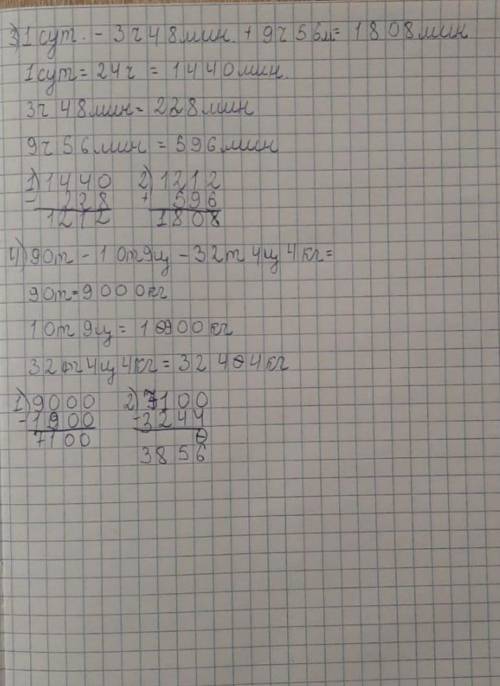 3) 1 сут. - 3ч 48 мин. + 9ч 56м = 1808 мин
1 сут = 24ч = 1440 мин.
3ч 48 мин = 228 мин
9ч 56 мин = 596 мин
1) 1440 2) 1212
- 228 + 596
1212 1808
4) 90т - 10т 9ц - 32т 4ц 4кг =
90т = 9000кг
10т 9ц = 10900кг
32т 4ц 4кг = 32404кг
1) 9000 2) 7100
-1900 -3244
7100 3856